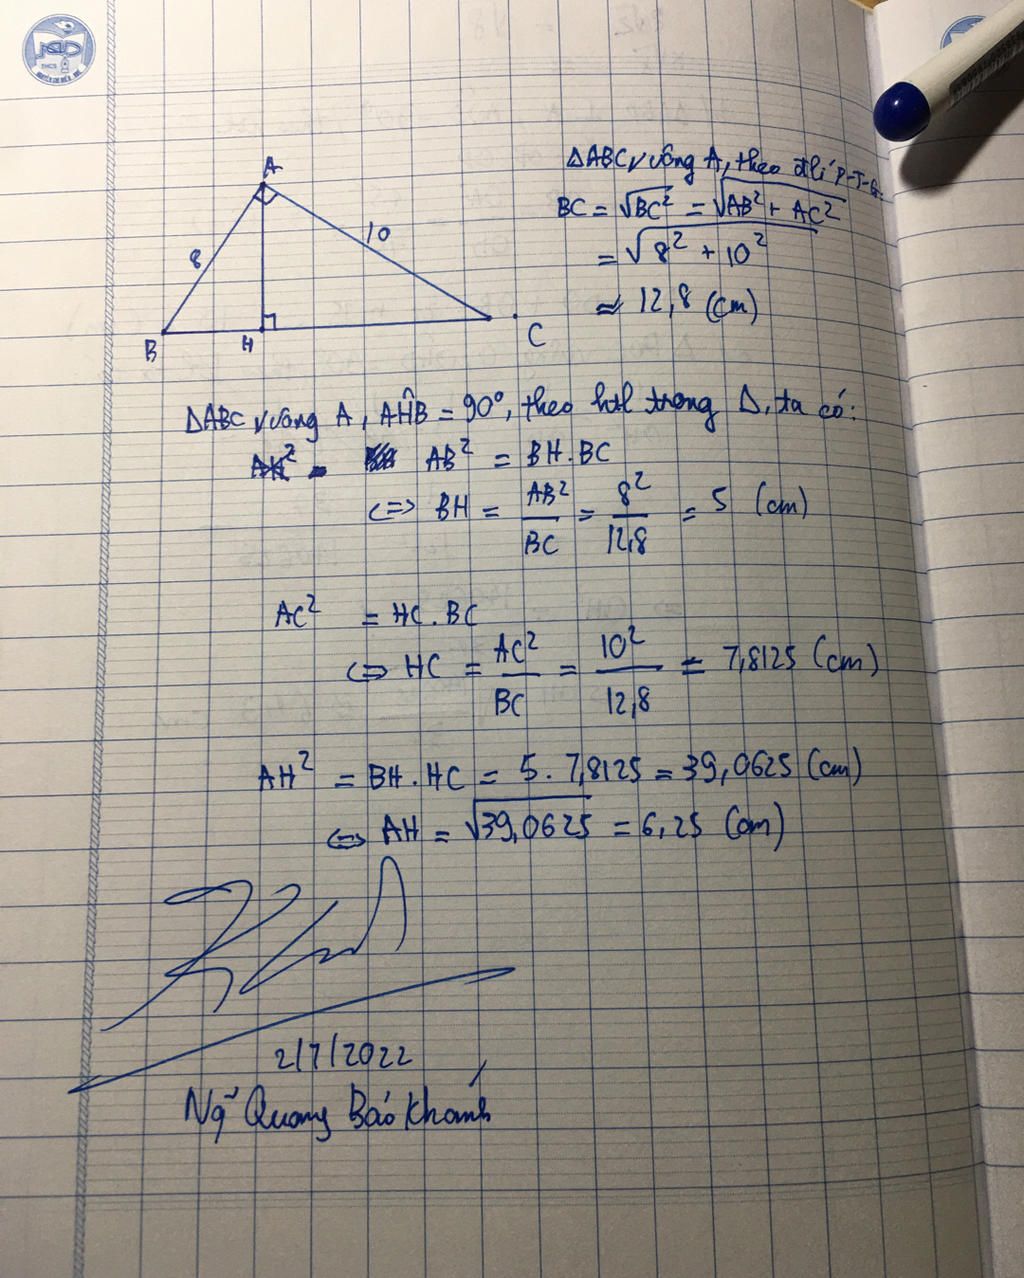 A
8
10
B
H
C
ΔABC vuông A, theo đlí P-T-G:
BC = √BC² = √AB² + AC²
= √8² + 10²
≈ 12,8 (cm)
ΔABC vuông A, AĤB = 90°, theo htl trong Δ, ta có:
AB² = BH.BC
<=> BH = AB²/BC = 8²/12,8 = 5 (cm)
AC² = HC.BC
<=> HC = AC²/BC = 10²/12,8 = 7,8125 (cm)
AH² = BH.HC = 5.7,8125 = 39,0625 (cm)
<=> AH = √39,0625 = 6,25 (cm)
2/7/2022
Ng~ Quang Bảo Khánh